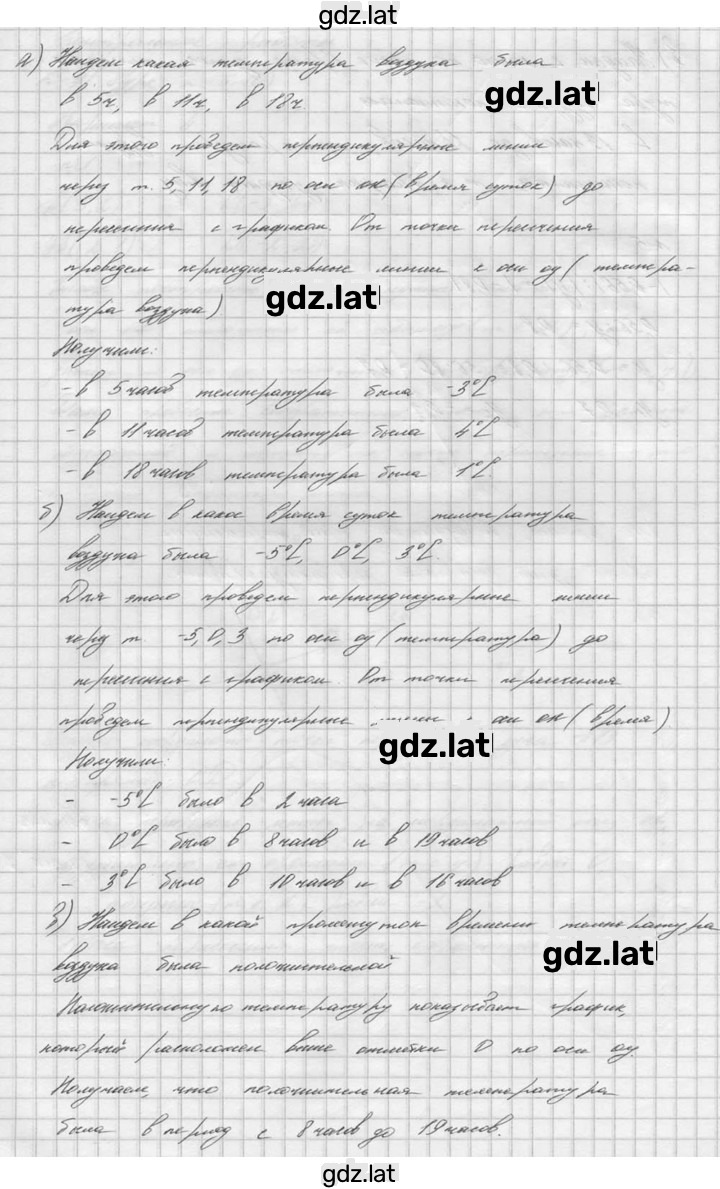 gdz.lat
а) Найдем какая температура воздуха была
в 5ч, в 11ч, в 18ч.
gdz.lat
Для этого проведем перпендикулярные линии
через т. 5, 11, 18 по оси ох (время суток) до
пересечения с графиком. От точки пересечения
проведем перпендикулярные линии к оси оу (темпера-
тура воздуха)
gdz.lat
Получили:
- в 5 часов температура была -3°C
- в 11 часов температура была 4°C
- в 18 часов температура была 1°C.
б) Найдем в какое время суток температура
воздуха была -5°C, 0°C, 3°C.
Для этого проведем перпендикулярные линии
через т. -5, 0, 3 по оси оу (температура) до
пересечения с графиком. От точки пересечения
проведем перпендикулярные оси ох (время).
gdz.lat
Получили:
- -5°C было в 2 часа
- 0°C было в 8 часов и в 19 часов
- 3°C было в 10 часов и в 16 часов
в) Найдем в какой промежуток времени температура
воздуха была положительной
gdz.lat
Положительную температуру показывает график,
который расположен выше отметки 0 по оси оу.
Получаем, что положительная температура
была в период с 8 часов до 19 часов.
gdz.lat